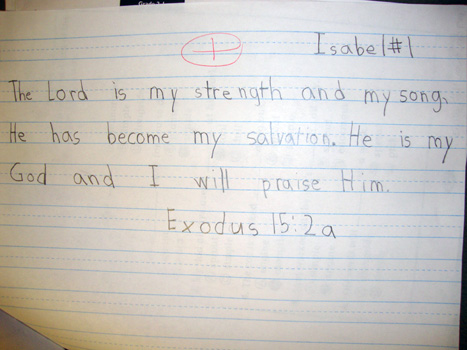 Isabel #1
The Lord is my strength and my song.
He has become my salvation. He is my
God and I will praise Him.
Exodus 15:2a